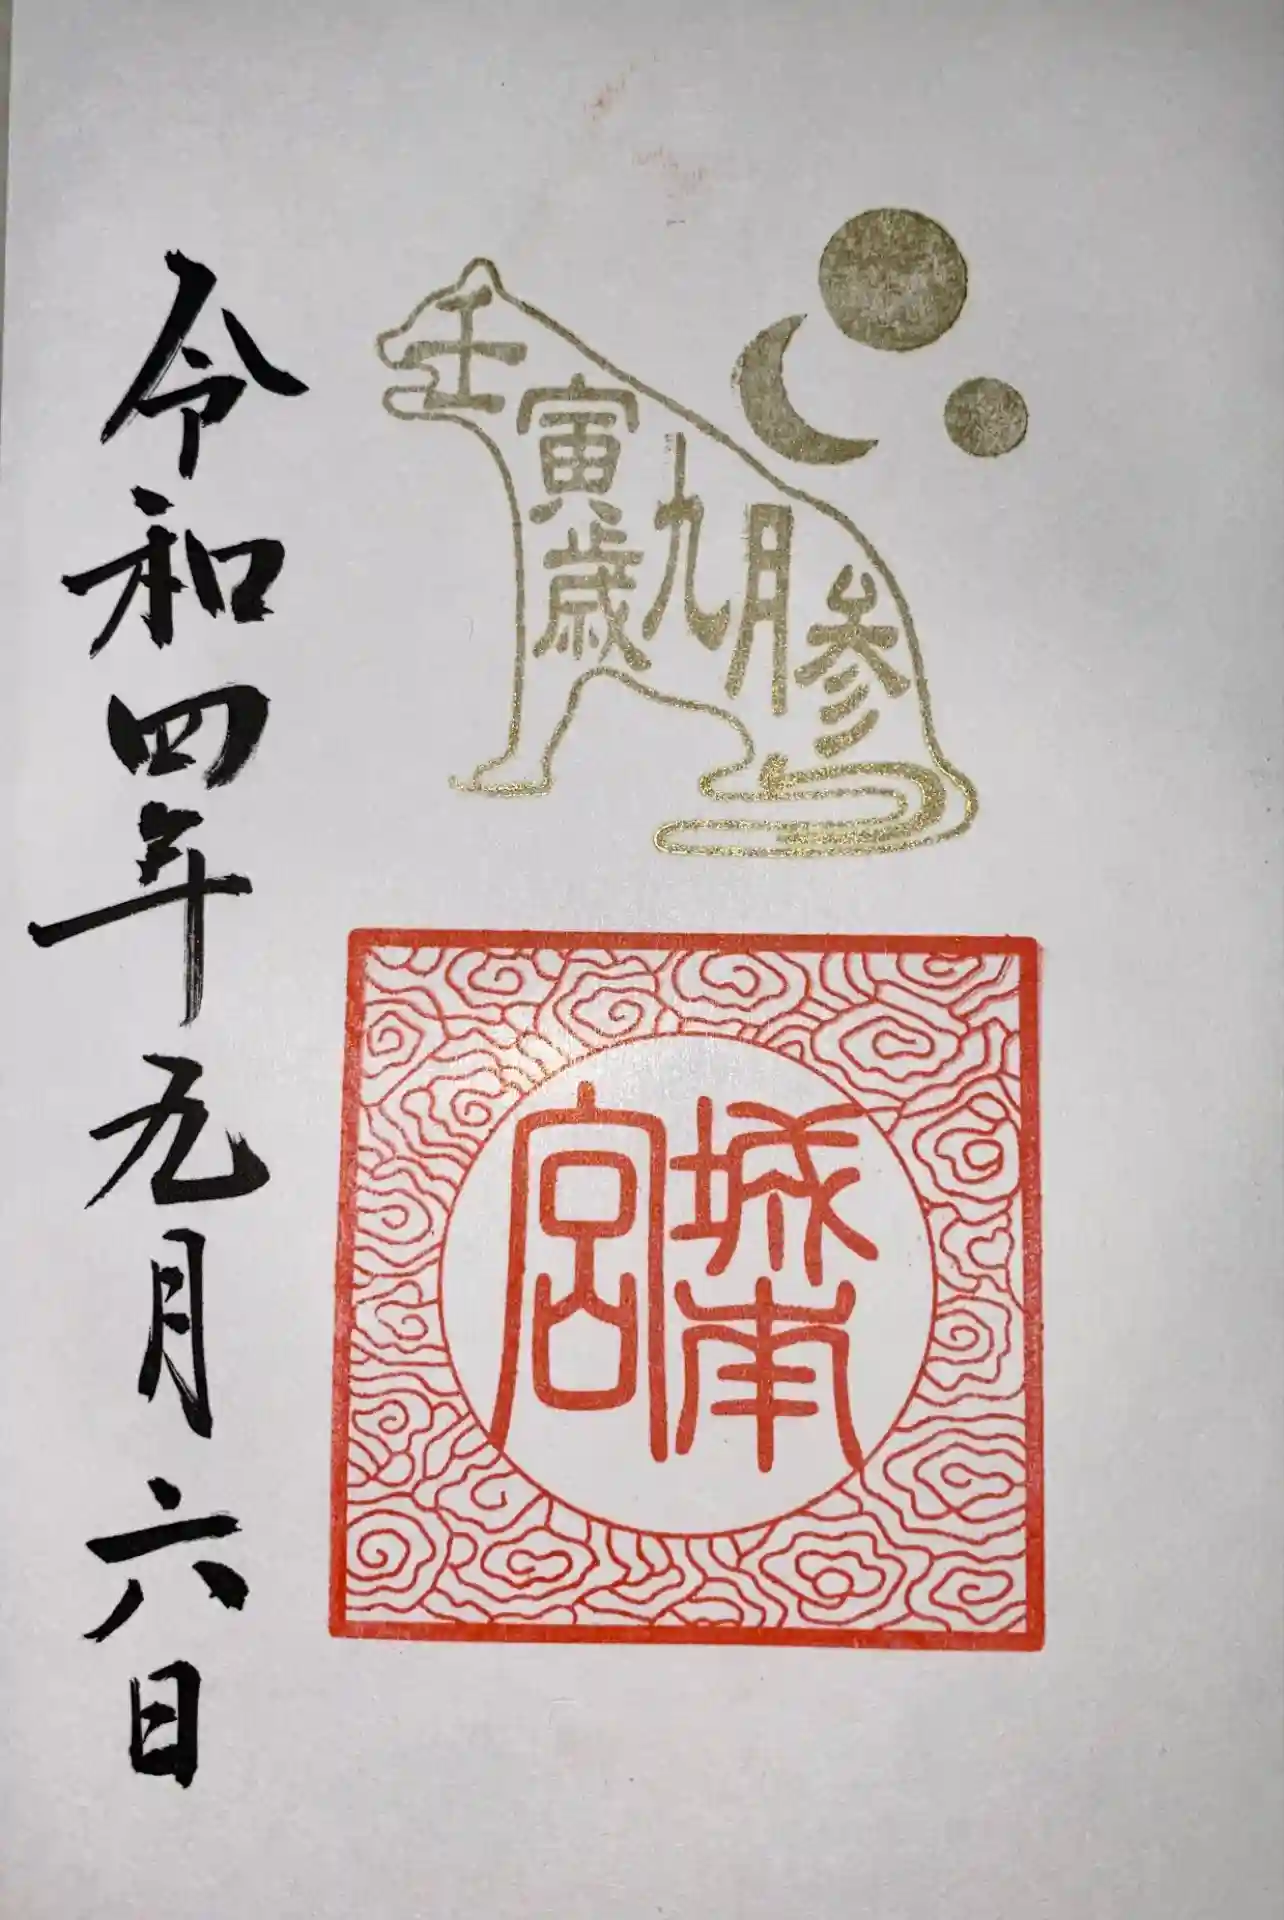 壬寅歳九月参
城南
宮
令和四年九月六日